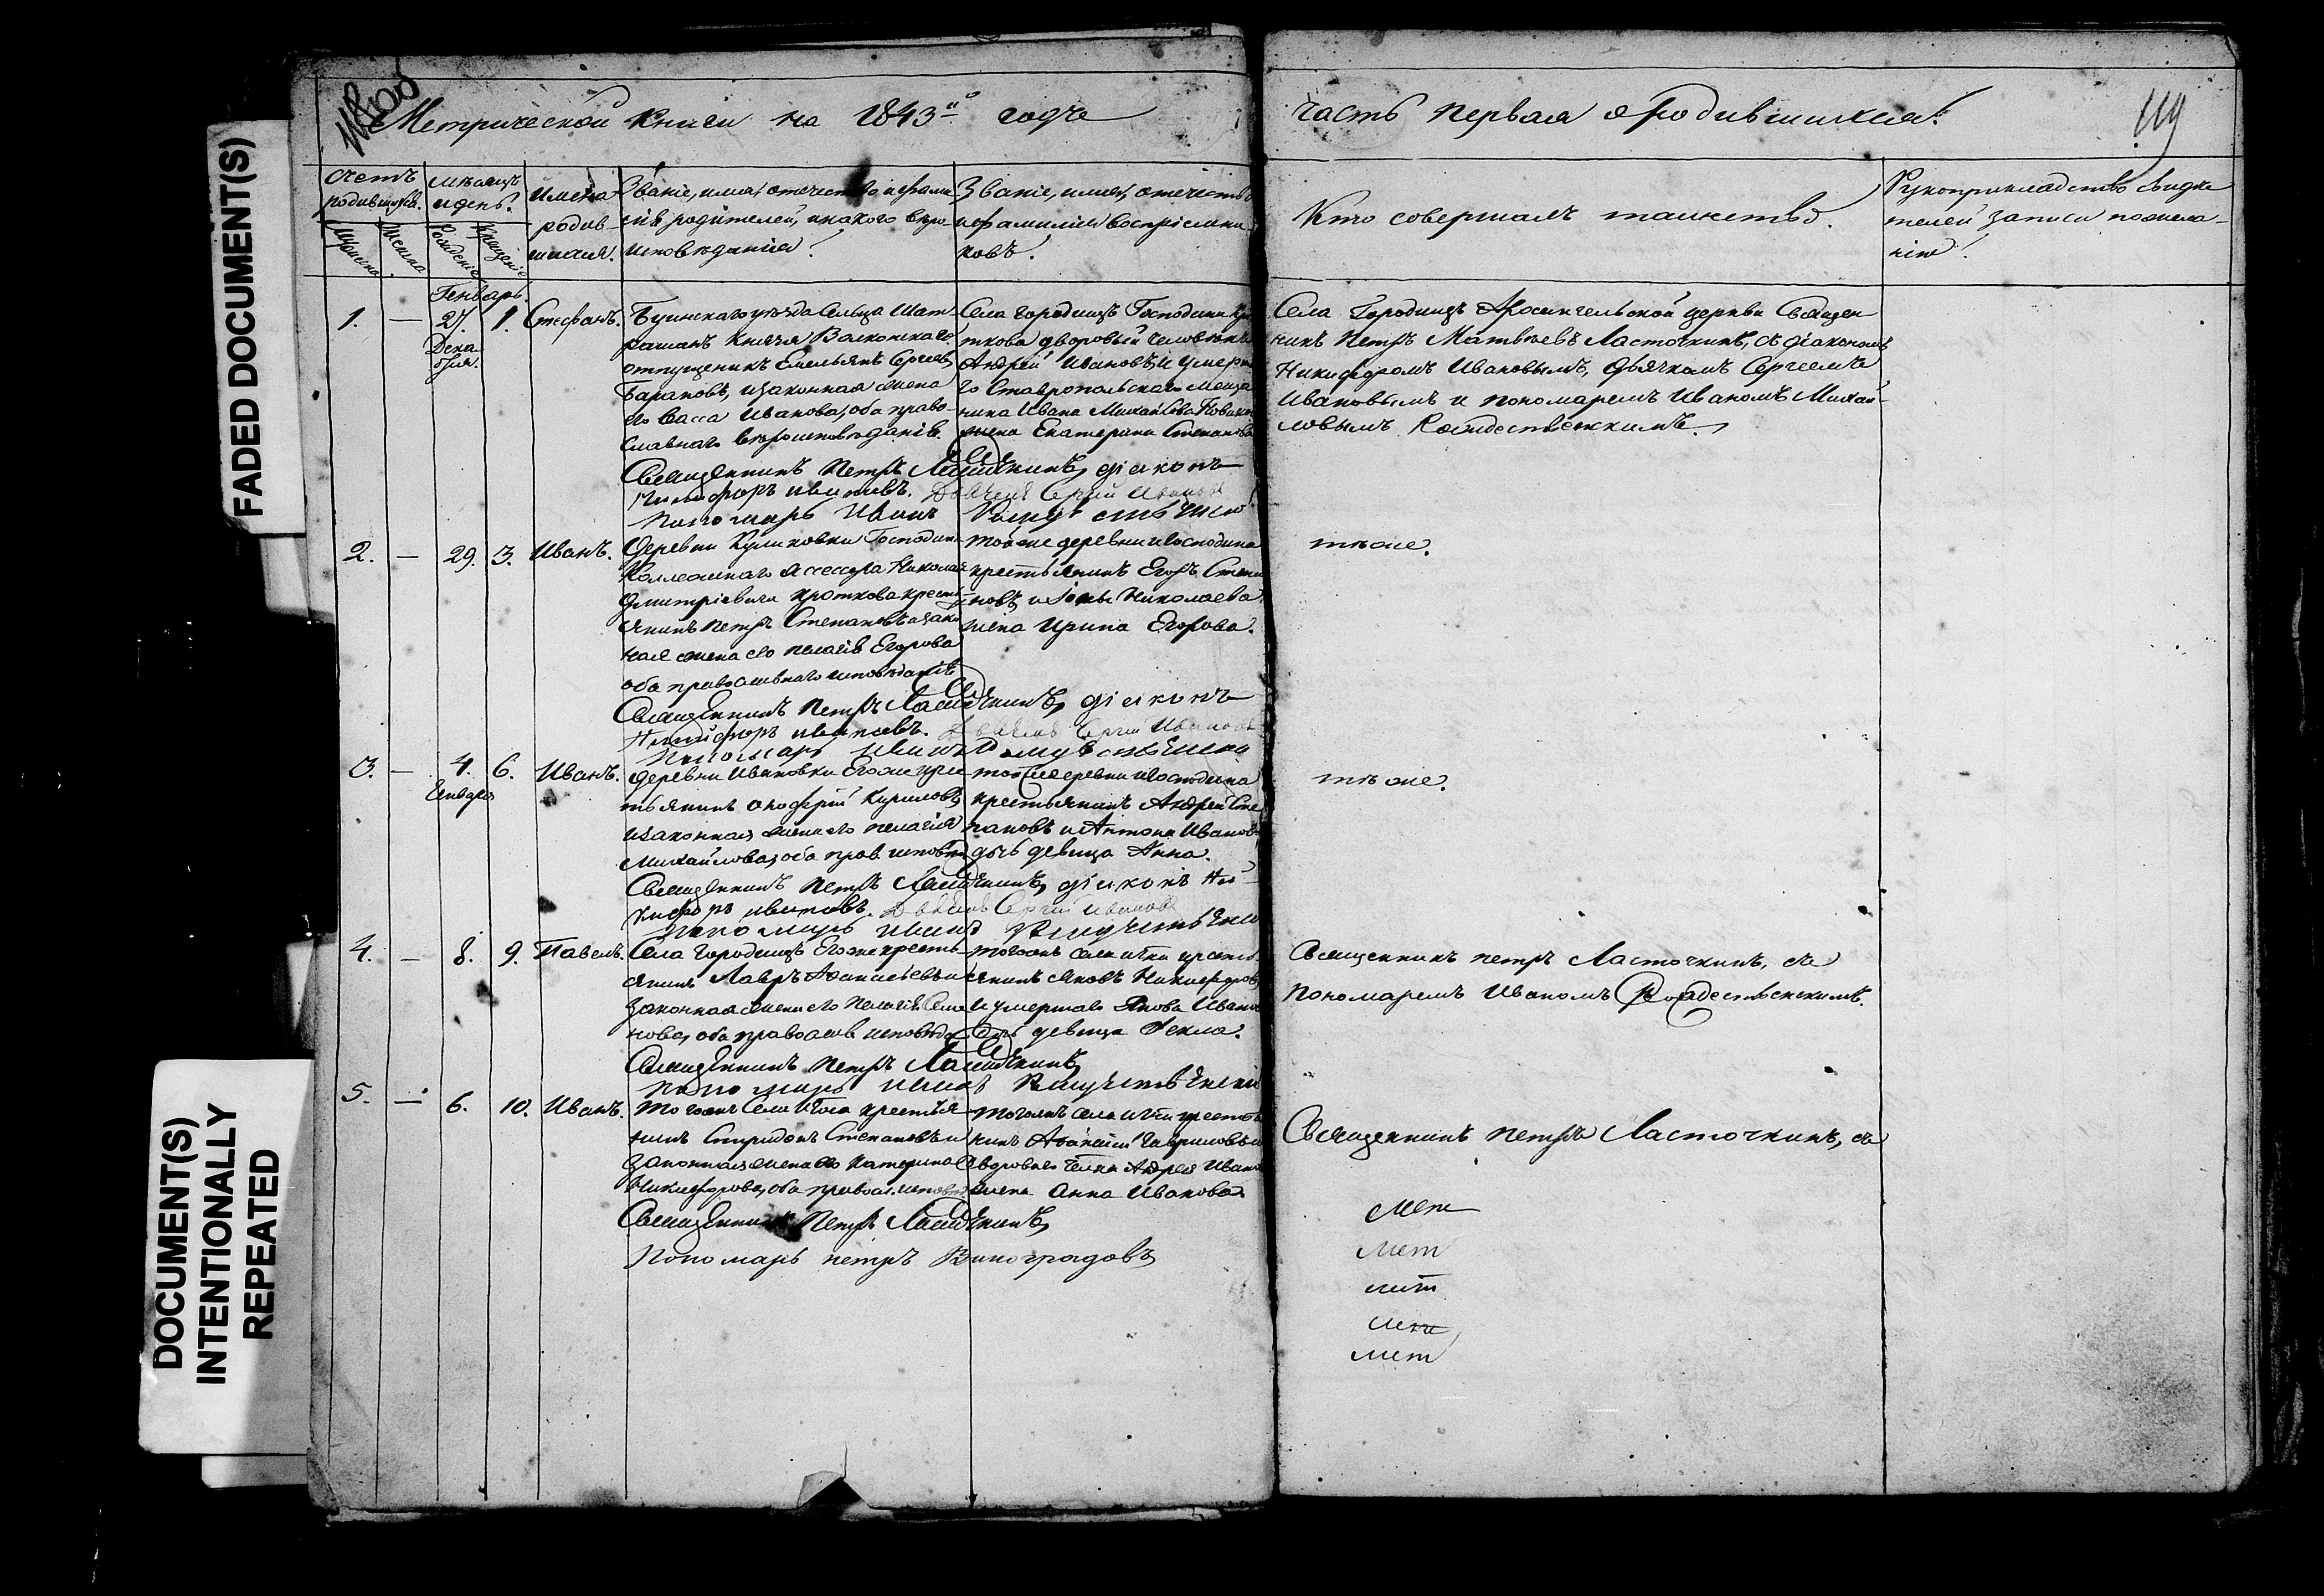 FADED DOCUMENT(S)
DOCUMENT(S)
INTENTIONALLY
REPEATED
Метрической книги на 1843й годъ
часть первая о родившихся.
119
Счетъ родившихся.
мужеска
женска
Мѣсяцъ и день.
Рожденіе
Крещеніе
Имена родившихся.
Званіе, имя, отечество и фамилія родителей, и какого вѣроисповѣданія.
Званіе, имя, отечество и фамилія воспріемниковъ.
Кто совершалъ таинство.
Рукоприкладство свидѣтелей записи по желанію.
Генварь.
1. — 27. 1. Стефанъ.
Декабря.
Буинскаго уѣзда Сельца Шатрашанъ Князя Волконскаго
отпущеникъ Емельянъ Сергеевъ
Барановъ, и законная жена
его Васса Иванова, оба православнаго вѣроисповѣданія.
Села Городищъ Господина
дворовый человѣкъ
Андрей Ивановъ, и умершаго Ставропольскаго мещанина Ивана Михайлова
жена Екатерина Степанова
Села Городищъ Архангельской церкви Священникъ Петръ Матвѣевъ Ласточкинъ, съ діакономъ
Никифоромъ Ивановымъ, дьячкомъ Сергеемъ
Ивановымъ и пономаремъ Иваномъ Михайловымъ Рождественскимъ.
Священникъ Петръ Ласточкинъ, діаконъ
Никифоръ Ивановъ. Дьячекъ Сергій Ивановъ
Пономарь Иванъ
2. — 29. 3. Иванъ.
Деревни Куликовки Господина
Коллежскаго Ассесора Николая
Дмитріевича Кроткова крестьянинъ Петръ Степановъ и законная жена его Пелагія Егорова
оба православнаго исповѣданія
тойже деревни и Господина
крестьянинъ Егоръ Степановъ, и Николаева
жена Ирина Егорова.
тѣже.
Священникъ Петръ Ласточкинъ, діаконъ
Никифоръ Ивановъ. Дьячекъ Сергій Ивановъ
Пономарь Иванъ
3. — 4. 6. Иванъ.
Генваря
деревни Ивановки Егоже крестьянинъ Онофрій Кириловъ,
и законная жена его Пелагія
Михайлова, оба прав. исповѣд
тойже деревни и Господина
крестьянинъ Андрей Степановъ и Антона Иванова
дочь девица Анна.
тѣже.
Священникъ Петръ Ласточкинъ, діаконъ Никифоръ Ивановъ. Дьячекъ Сергій Ивановъ
Пономарь Иванъ
4. — 8. 9. Павелъ.
Села Городищъ Егоже крестьянинъ Лавръ Афанасьевъ и
законная жена его Пелагія
оба православ исповѣда
тогожъ села и Гна крестьянинъ Яковъ Никифоровъ,
и умершаго Якова Иванова
дочь девица Фекла.
Священникъ Петръ Ласточкинъ, съ
Пономаремъ Иваномъ Рождественскимъ.
Священникъ Петръ Ласточкинъ,
Пономарь Иванъ
5. — 6. 10. Иванъ.
тогожъ Села и Гна крестьянинъ Спиридонъ Степановъ и
законная жена его Катерина
Никифорова, оба православ. исповѣд
тогожъ села и Гна крестьянинъ Афанасій Гавриловъ и
двороваго Андрея Иванова
жена Анна Иванова
Священникъ Петръ Ласточкинъ, съ
Священникъ Петръ Ласточкинъ,
Пономарь Петръ Виноградовъ